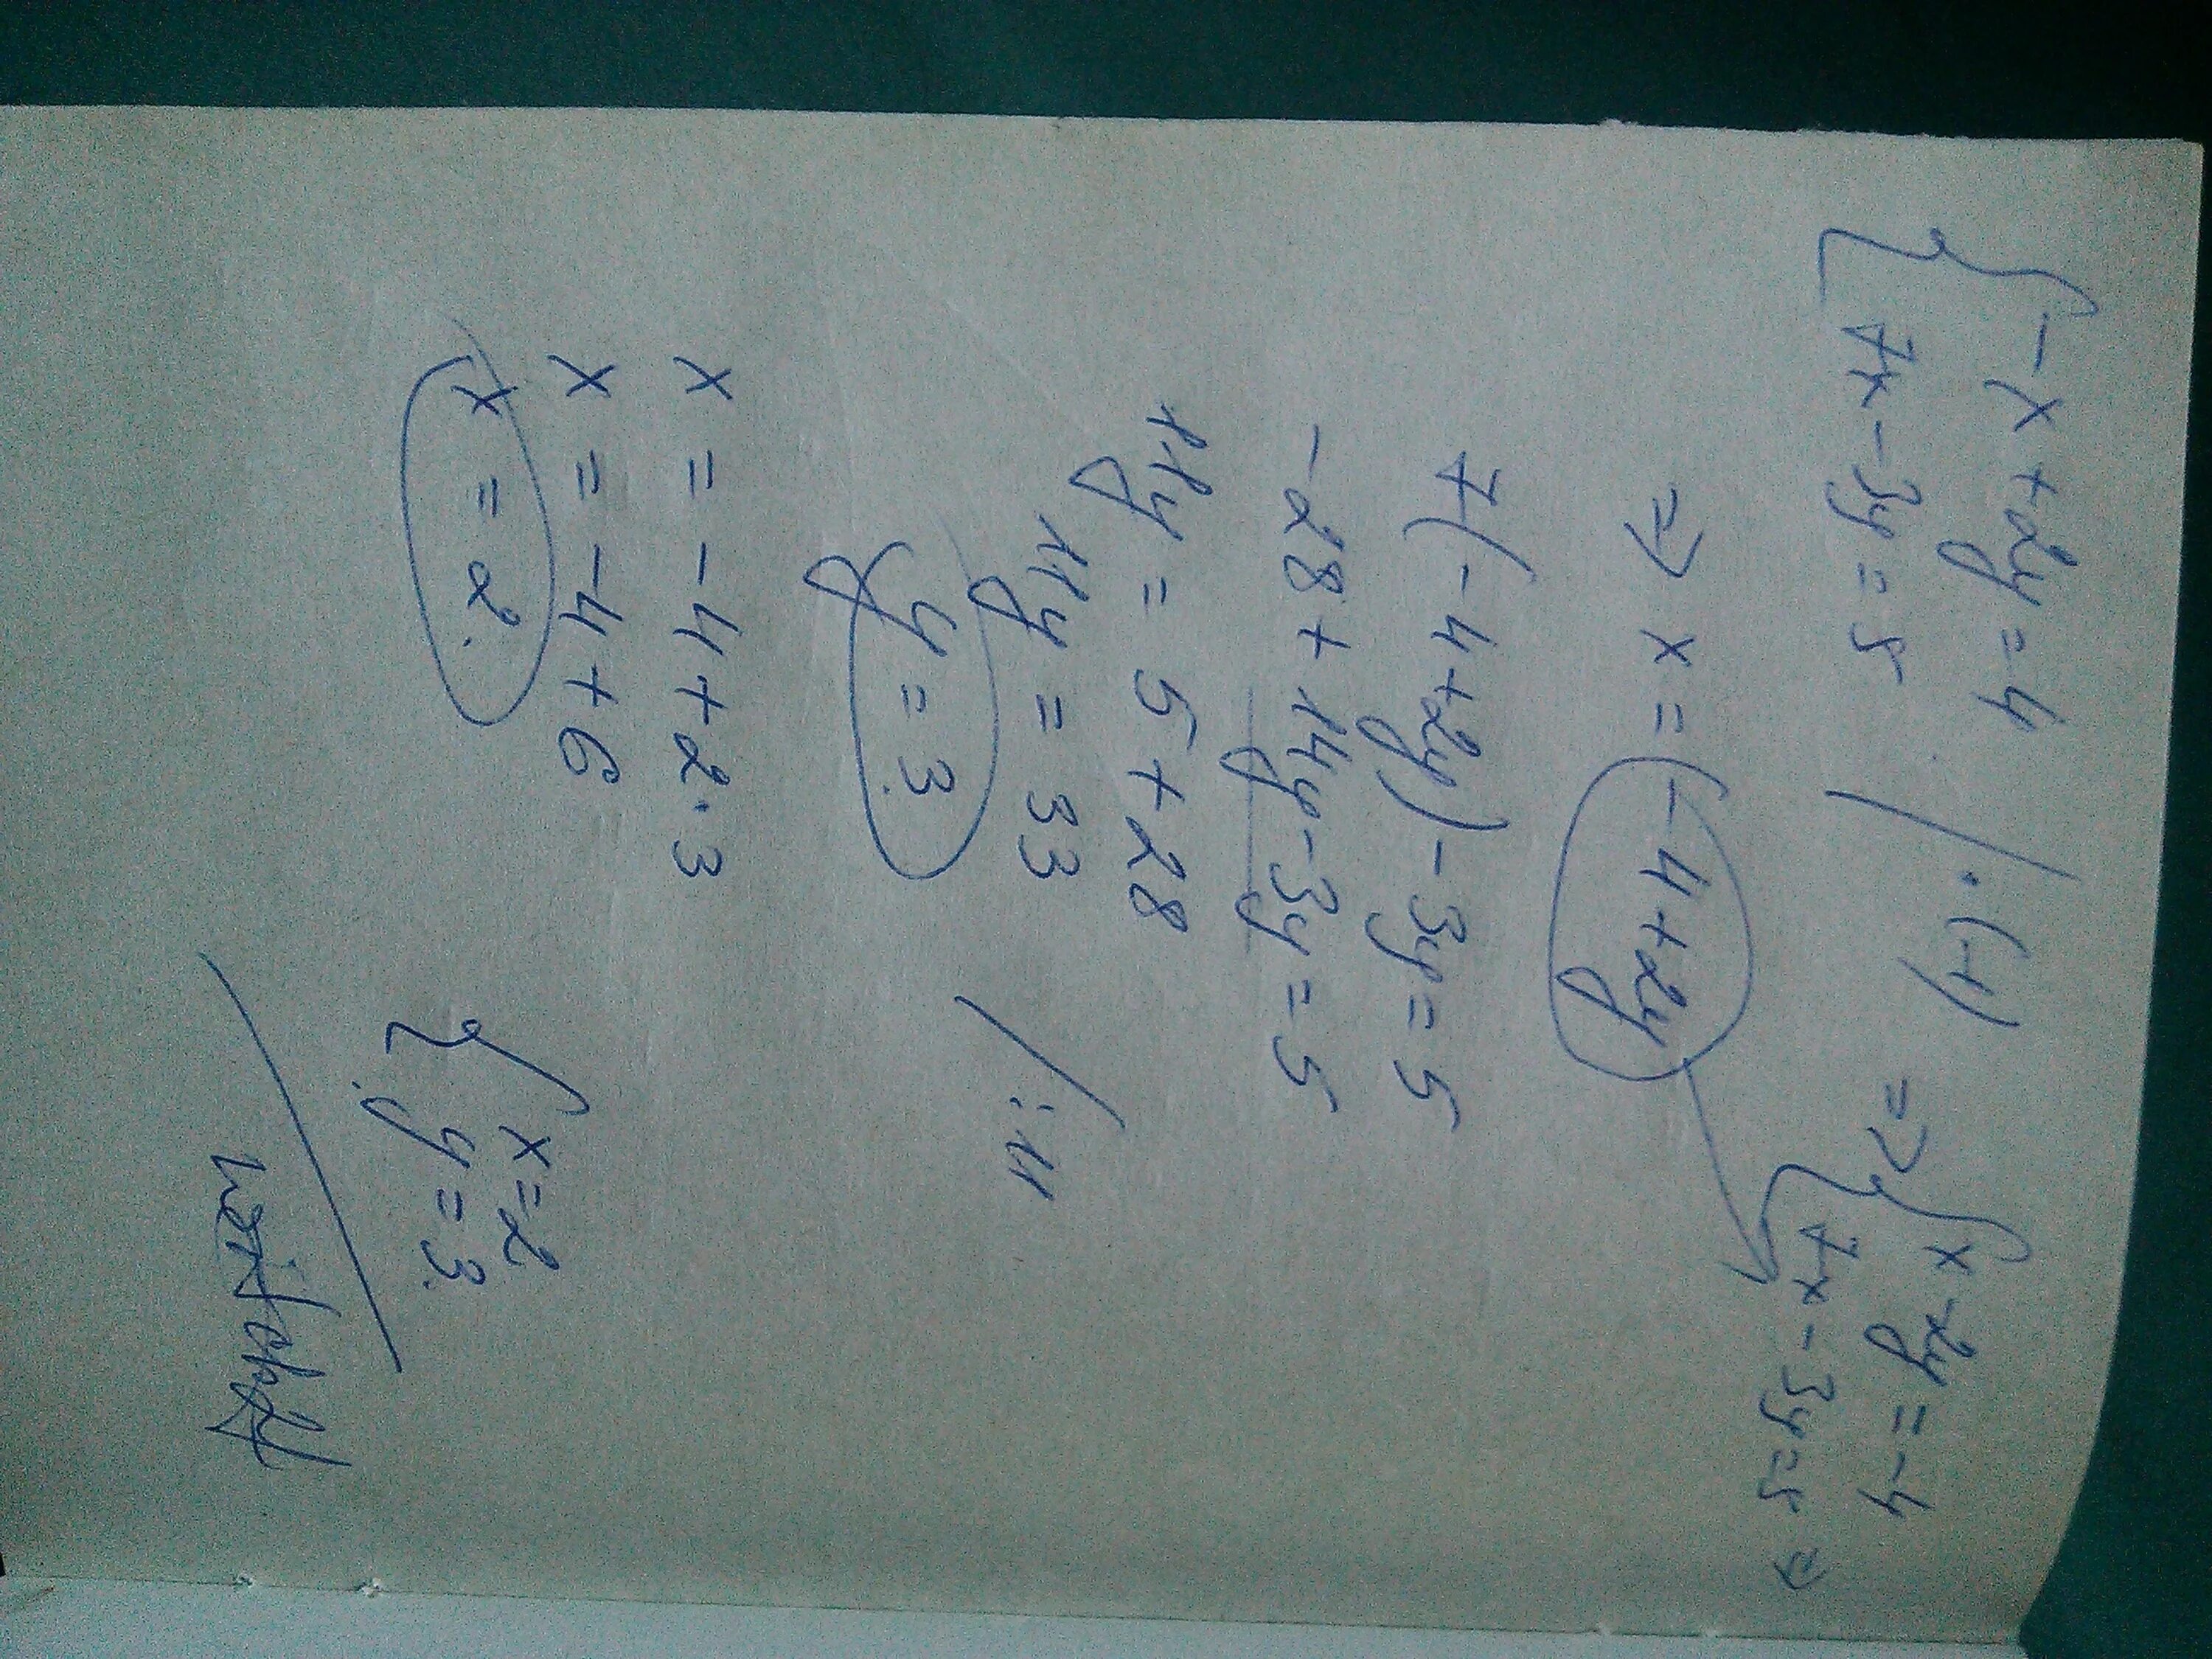 { -x + 2y = 4 / · (-1) => { x - 2y = -4
{ 7x - 3y = 5 { 7x - 3y = 5 =>
=> x = -4 + 2y
7(-4 + 2y) - 3y = 5
-28 + 14y - 3y = 5
11y = 5 + 28
11y = 33 /:11
y = 3
x = -4 + 2·3
x = -4 + 6
x = 2
{ x = 2
{ y = 3